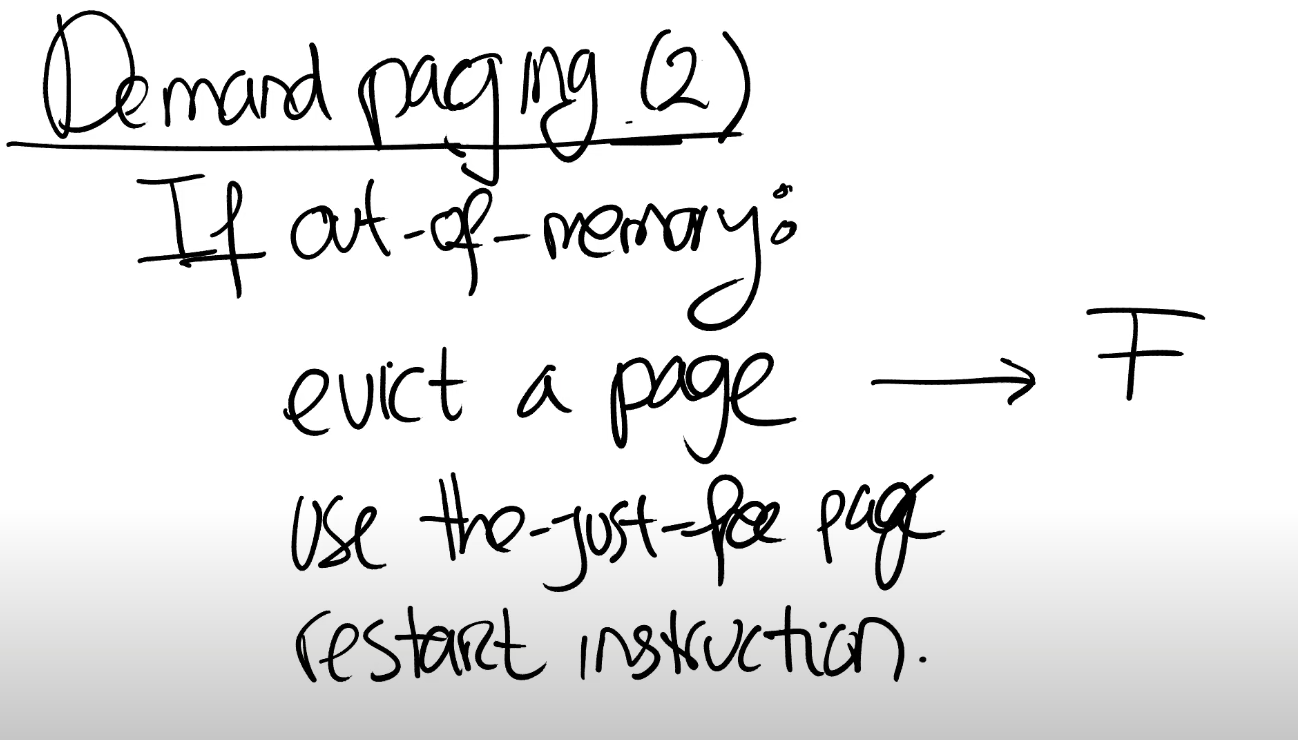 Demand paging (2)
If out-of-memory:
evict a page → F
use the-just-free page
restart instruction.